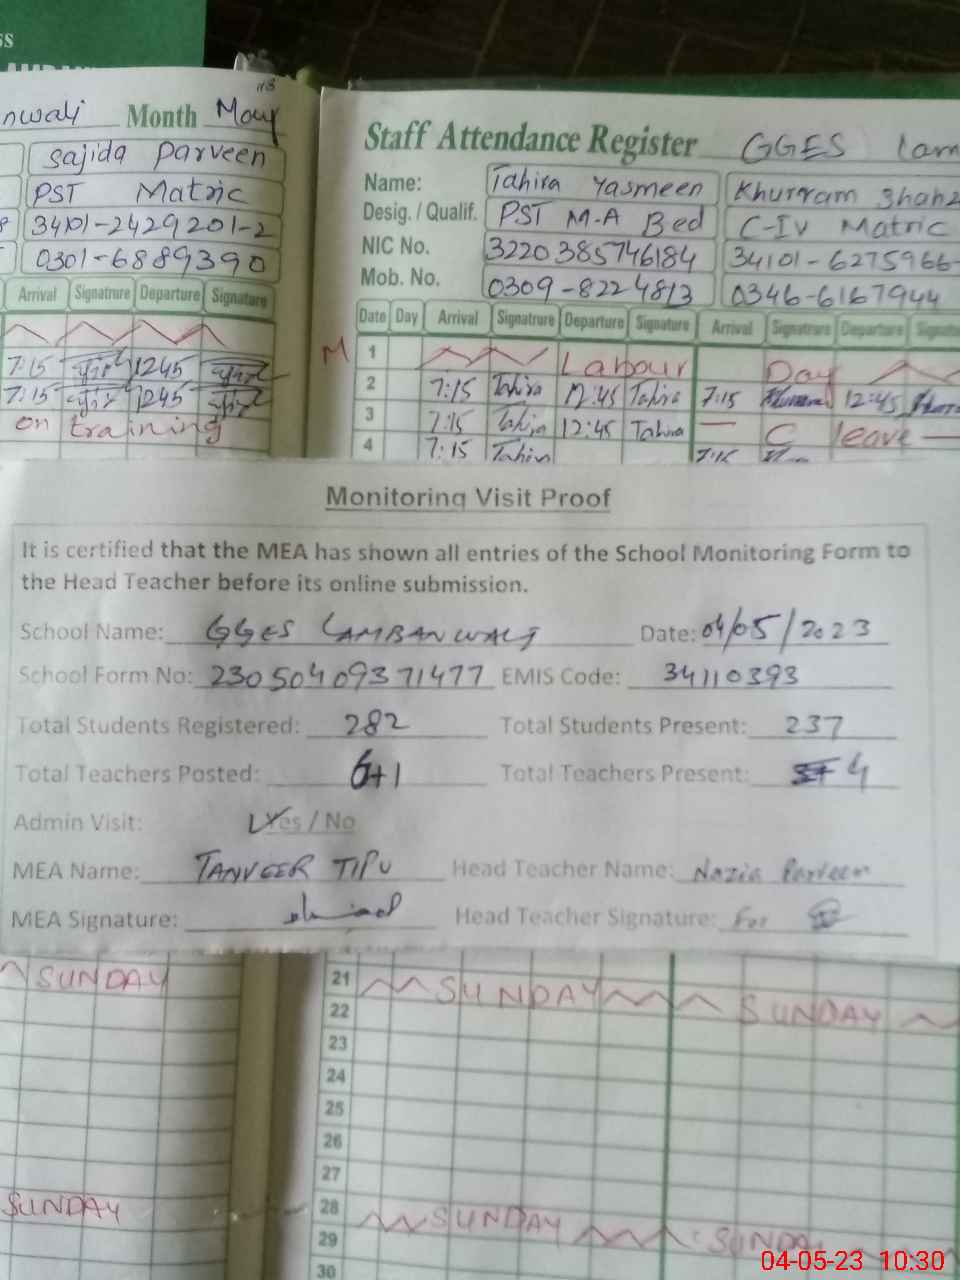 ss
nwali Month May
Sajida Parveen
PST Matric
34101-2429201-2
0301-6889390
Arrival Signatrure Departure Signature
7:15 1245
7:15 1245
on training
Staff Attendance Register GGES Lam
Name: Tahira Yasmeen Khurram Shahz
Desig. / Qualif. PST M-A Bed C-IV Matric
NIC No. 3220385746184 34101-6275966-
Mob. No. 0309-8224813 0346-6167944
Date Day Arrival Signatrure Departure Signature Arrival Signatrure Departure Signatu
M 1 Labour Day
2 7:15 Tahira 12:45 Tahira 7:15 12:45
3 7:15 Tahira 12:45 Tahira — C leave —
4 7:15 Tahira 7:15
Monitoring Visit Proof
It is certified that the MEA has shown all entries of the School Monitoring Form to
the Head Teacher before its online submission.
School Name: GGES LAMBANWALI Date: 04/05/2023
School Form No: 23050409371477 EMIS Code: 34110393
Total Students Registered: 282 Total Students Present: 237
Total Teachers Posted: 6+1 Total Teachers Present: 4
Admin Visit: Yes / No
MEA Name: TANVEER TIPU Head Teacher Name: Nazia Parveen
MEA Signature: Head Teacher Signature: For
SUNDAY
21 SUNDAY
22 SUNDAY
23
24
25
26
27
SUNDAY
28 SUNDAY
29 SUNDAY
30
04-05-23 10:30